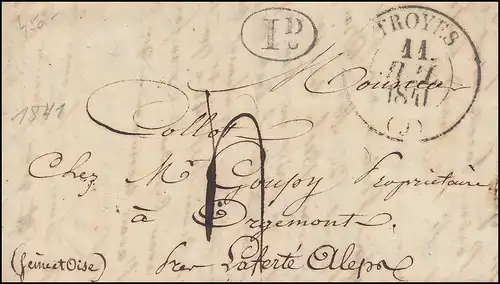 450-
1D
TROYES
11
1841
(9)
1841
Monsieur
Collot
Chez Mr Goupy Propriétaire
à Orgemont.
(Seine et Oise)
par Laferté Aleps